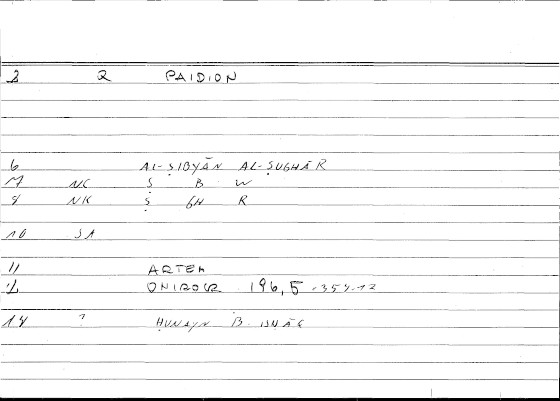 2 2 PAIDION
6 AL-ṢIBYĀN AL-ṢUGHĀR
7 NC Ṣ B W
8 NK Ṣ GH R
10 SA
11 ARTEM
12 ONIROCR 196,5 - 359.12
14 ? ḤUNAYN B. ISḤĀĆ